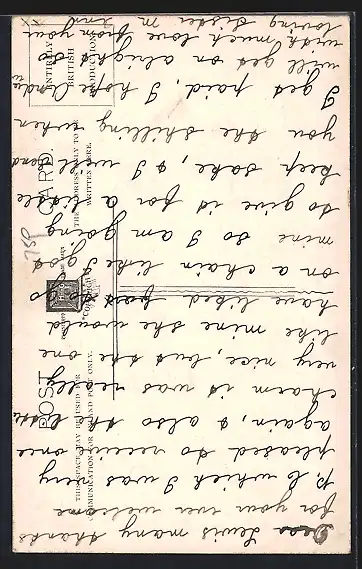 Dear Lewis many thanks
for your ever welcome
p.c which I was very
pleased to receive once
again, & also the little
charm it was really
very nice, but she one
like mine she would
have liked just so
on a chain like I got
mine so I am going
to give it for a little
keep sake, & I will send
you the shilling when
I get paid, I hope
will get on alright so
with much love from your
loving Sister M
POST CARD.
THIS SPACE MAY BE USED FOR
COMMUNICATION FOR INLAND POST ONLY.
THE ADDRESS ONLY TO BE
WRITTEN HERE.
ENTIRELY
BRITISH
PRODUCTION
750